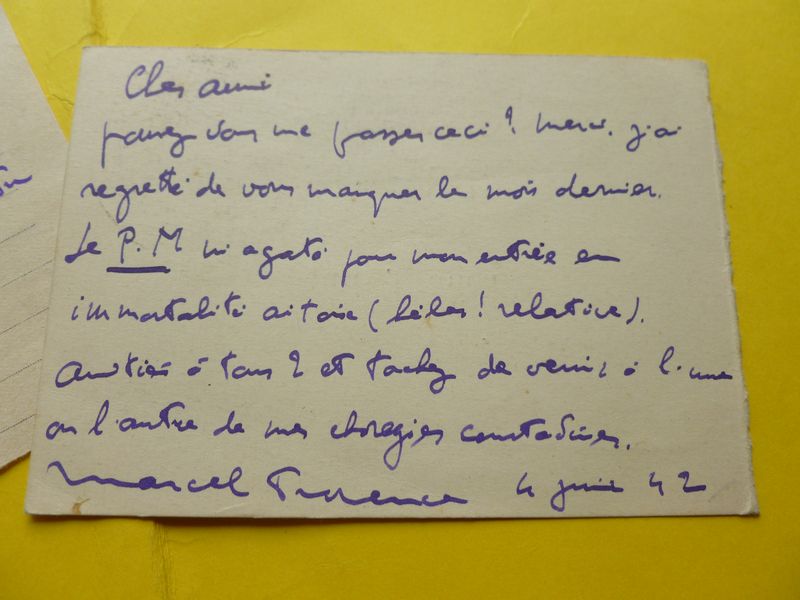 Cher ami
pouvez vous me passer ceci ? merci. j'ai
regretté de vous manquer le mois dernier.
Le P.M m'a gaté pour mon entrée en
immortalité aixoise (hélas ! relative).
Amitiés à tous 2 et tachez de venir à l'une
ou l'autre de mes chorégies comtadines.
Marcel Provence 4 juin 42